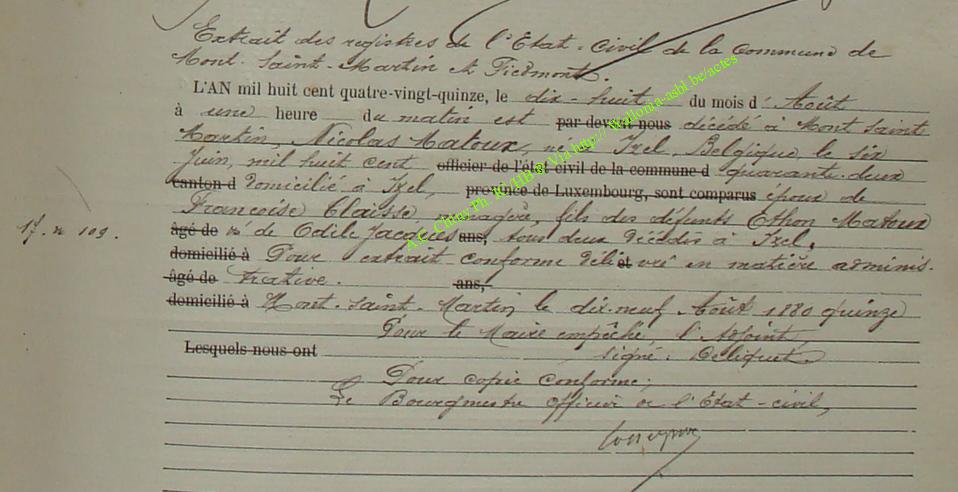 Extrait des registres de l'Etat-Civil de la commune de
Mont-Saint-Martin et Piedmont.
L'AN mil huit cent quatre-vingt-quinze, le dix-huit du mois d'Août
à une heure du matin est par devant nous décédé à Mont Saint
Martin, Nicolas Matoux, né à Izel, Belgique, le six
Juin, mil huit cent officier de l'état civil de la commune d quarante-deux
canton d domicilié à Izel, province de Luxembourg, sont comparus époux de
Françoise Claisse, ménagère, fils des défunts Ethon Matoux
17. n 109.
âgé de et de Odile Jacques ans, tous deux décédés à Izel.
domicilié à Pour extrait conforme déli et vré en matière adminis-
âgé de trative. ans,
domicilié à Mont-Saint-Martin le dix-neuf Août 1880 quinze
Pour le Maire empêché, l'Adjoint,
Lesquels nous ont signé: Deliquet.
Pour copie conforme,
Le Bourgmestre officier de l'Etat-civil,
A.E. Chiny Ph. Via http://Wallonia-asbl.be/actes